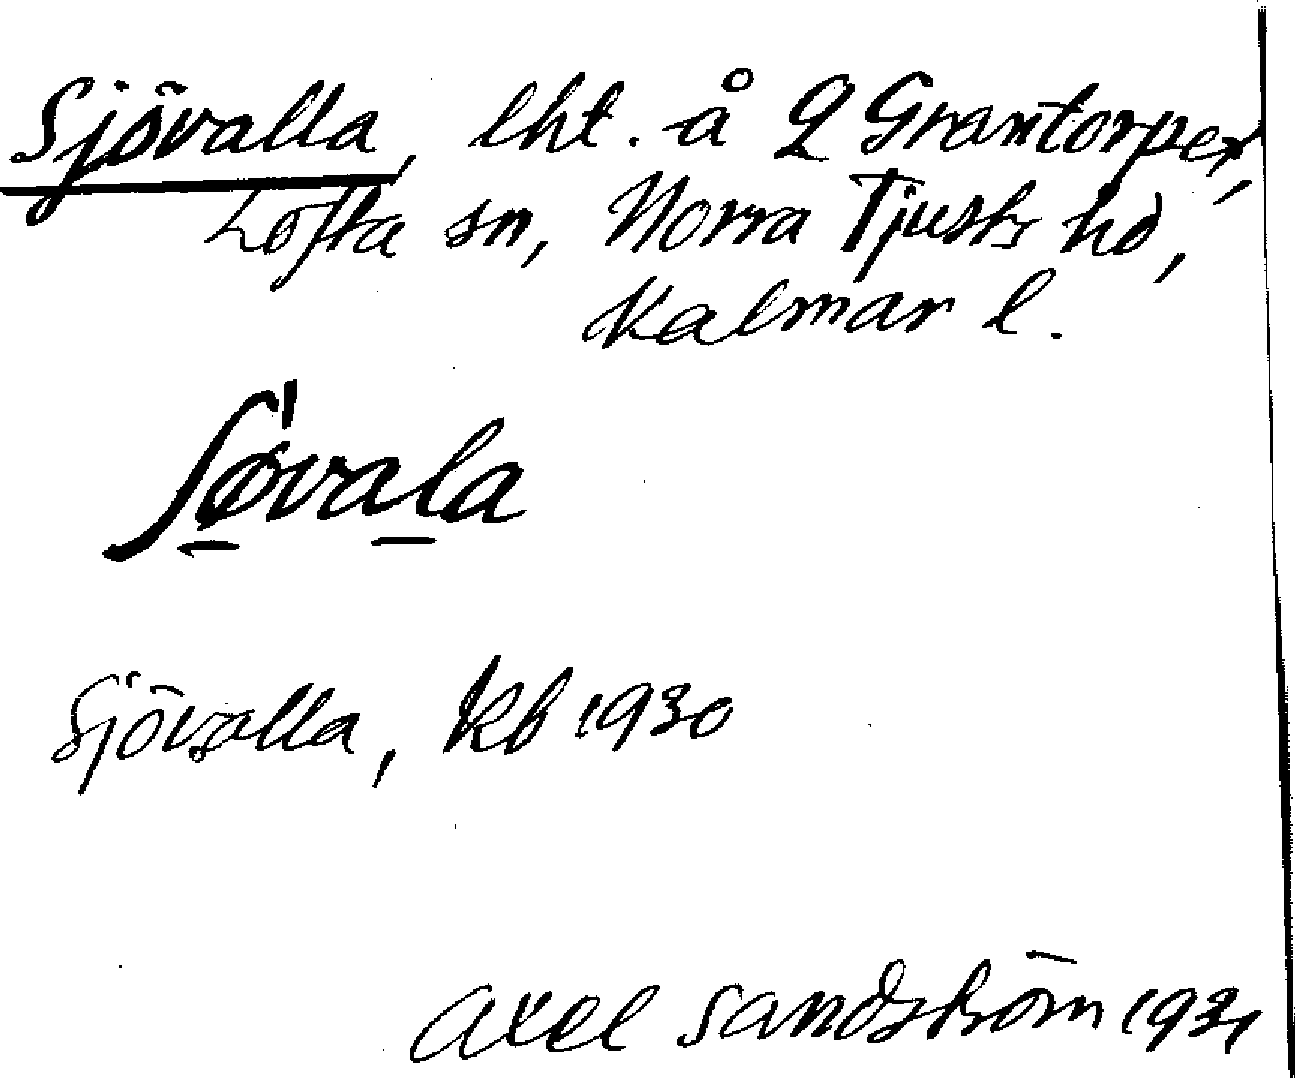 Sjövalla, lht. å 2 Grantorpet,
Lofta sn, Norra Tjusts hd,
Kalmar l.
ʃø̱'va̱la
Sjövalla, Kb 1930
Axel Sandström 1931